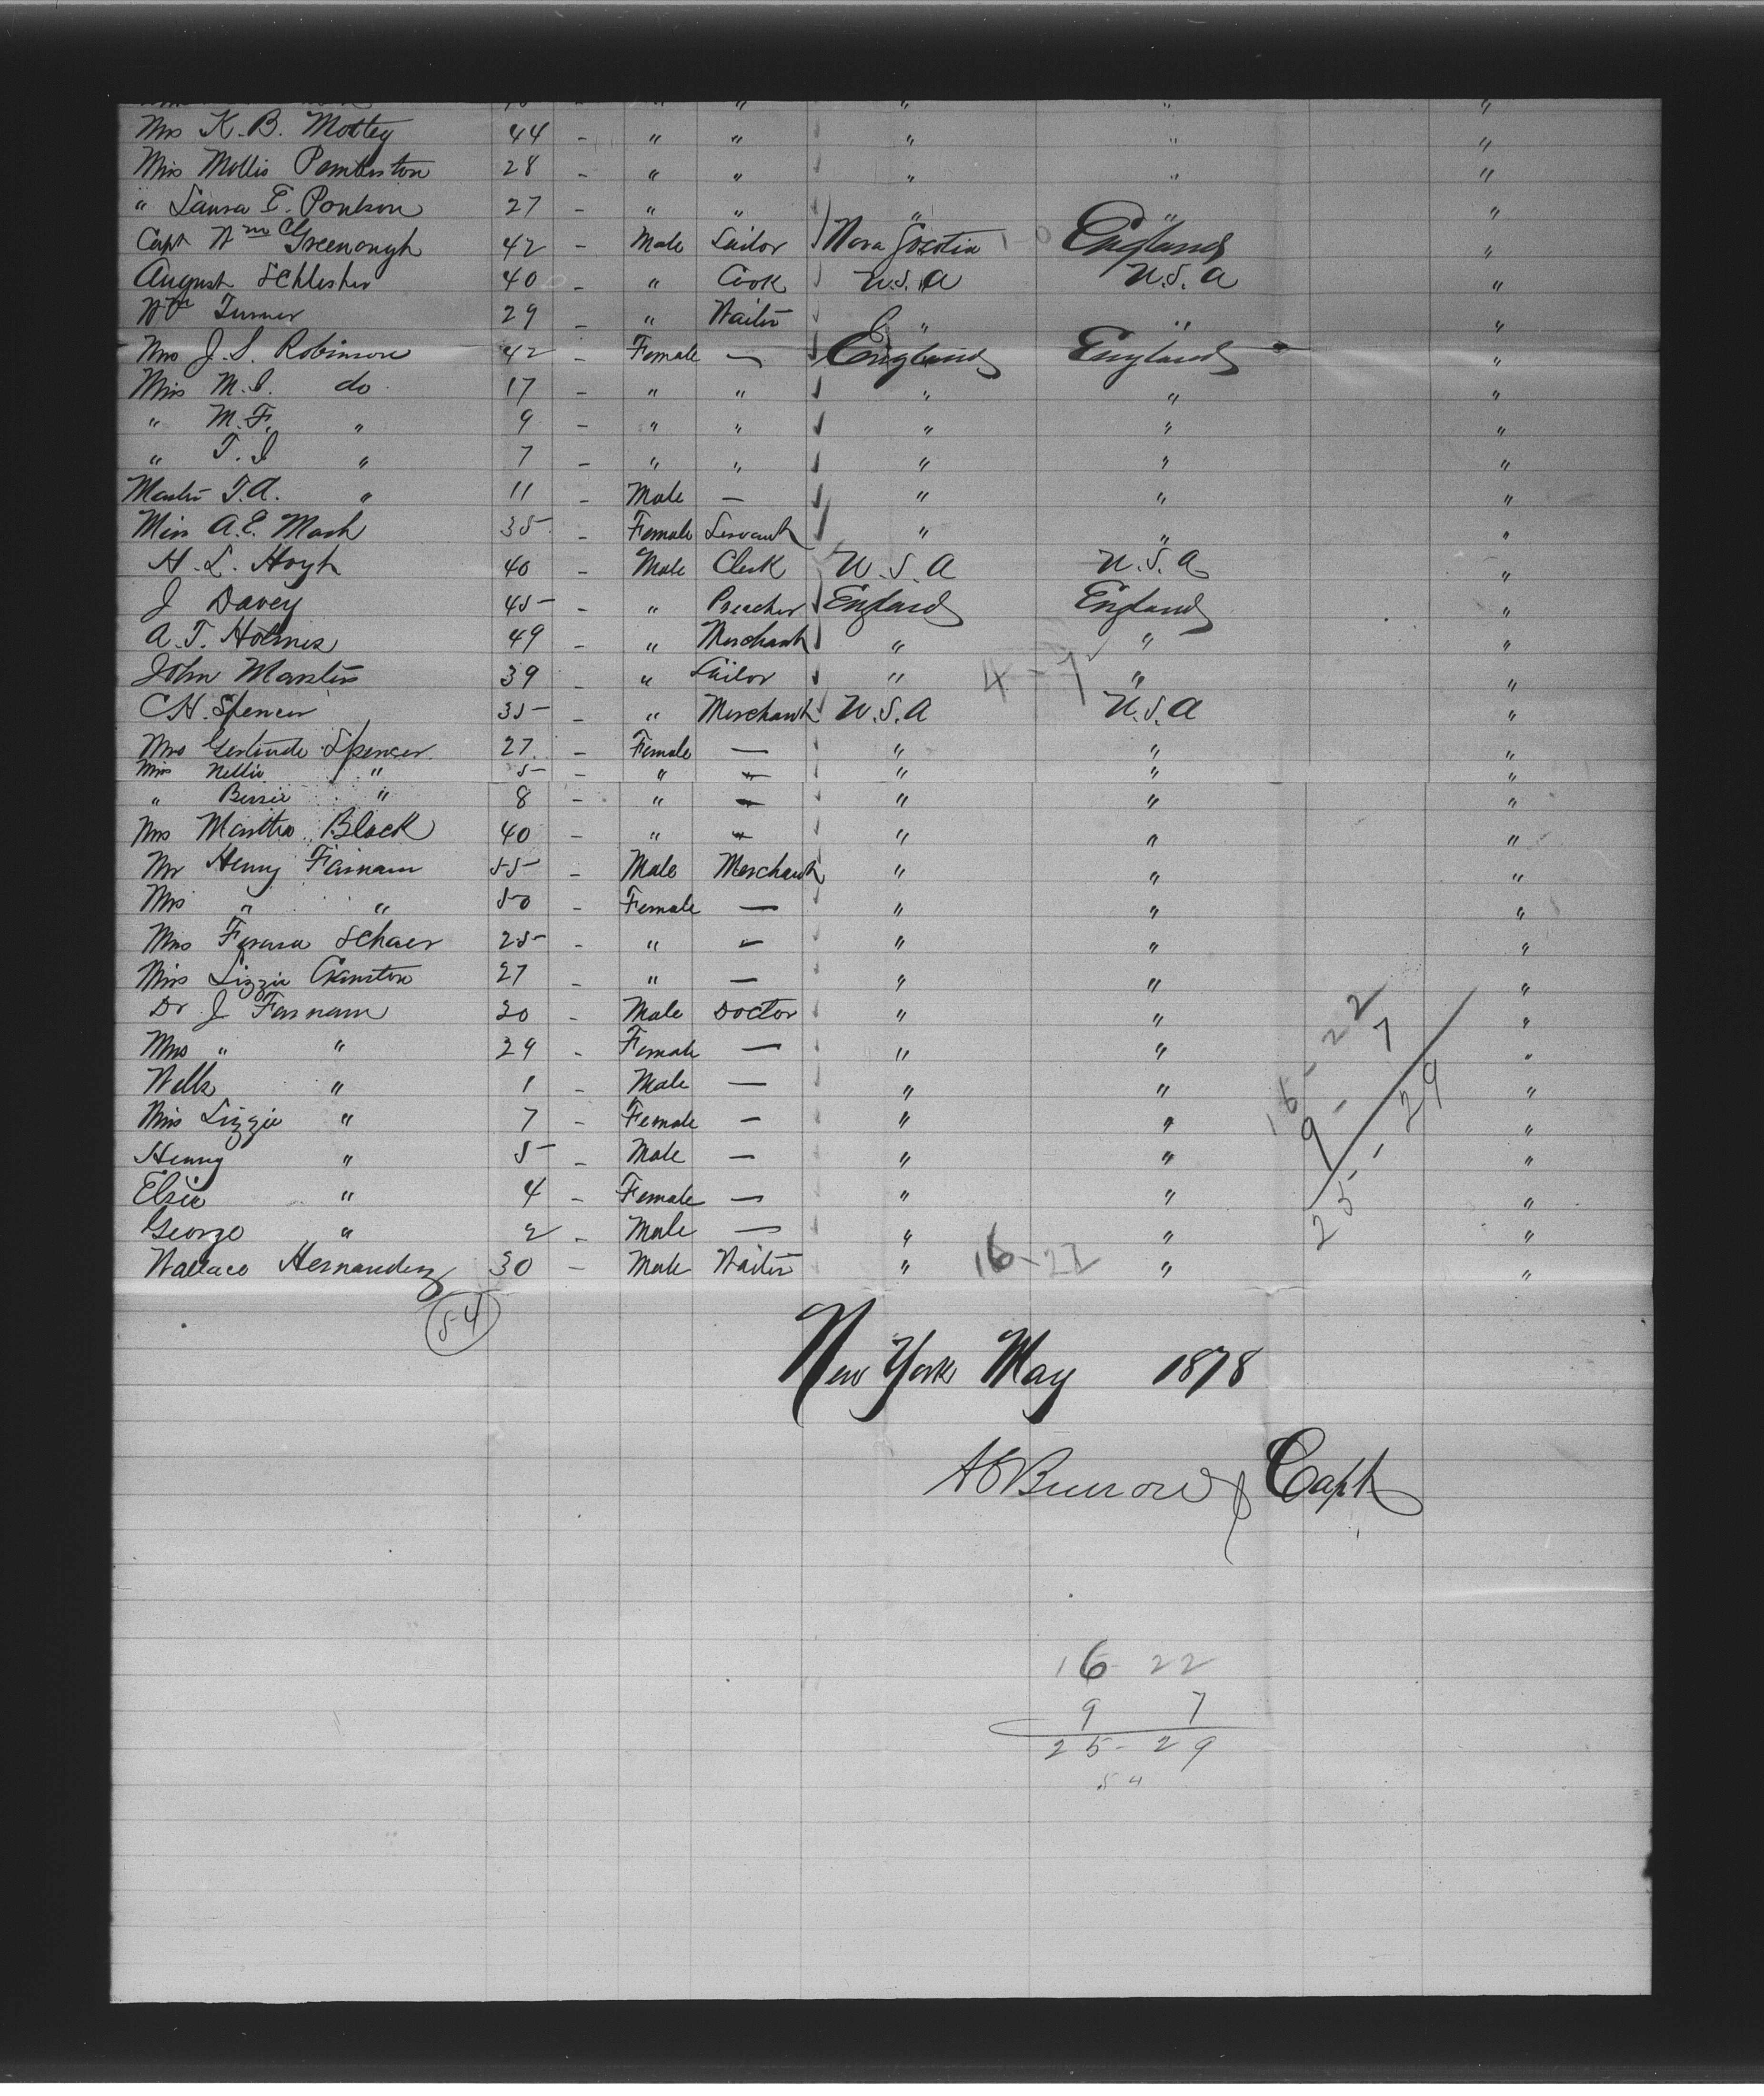 Mrs K. B. Mottey 44 - " " " " "
Miss Mollie Pemberton 28 - " " " " "
" Laura E. Poulson 27 - " " " " "
Capt Wm C Greenough 42 - Male Sailor Nova Scotia 1-0 England "
August Schlesher 40 " Cook U.S.A U.S.A "
Wm Turner 29 - " Waiter " " "
Mrs J. S. Robinson 42 - Female — England England "
Miss M. S. do 17 - " " " " "
" M. F. " 9 - " " " " "
" T. S " 7 - " " " " "
Master T. A. " 11 - Male — " " "
Miss A. E. Mash 35 - Female Servant " " "
H. L. Hoyt 40 - Male Clerk U.S.A U.S.A "
J Davey 45 - " Preacher England England "
A. T. Holmes 49 - " Merchant " " "
John Marstin 39 - " Sailor " 4-7 " "
C H. Spencer 35 - " Merchant U.S.A U.S.A "
Mrs Gertrude Spencer 27 - Female — " " "
Miss Nellie " 5 - " " " " "
" Bessie " 8 - " — " " "
Mrs Martha Black 40 - " " " " "
Mr Henry Farnam 55 - Male Merchant " " "
Mrs " " 50 - Female — " " "
Mrs Schaer 25 - " — " " "
Miss Lizzie Cranston 27 - " — " " "
Dr J Farnam 30 - Male Doctor " " "
Mrs " " 29 - Female — " " "
Wells " 1 - Male — " " "
Miss Lizzie " 7 - Female — " " "
Henry " 5 - Male — " " "
Elsie " 4 - Female — " " "
George " 2 - Male — " " "
Wallace Hernandez 30 - Male Waiter " 16-22 " "
54
16-22
9-7
25-29
New York May 1878
Capt
16-22
9 7
25-29
54